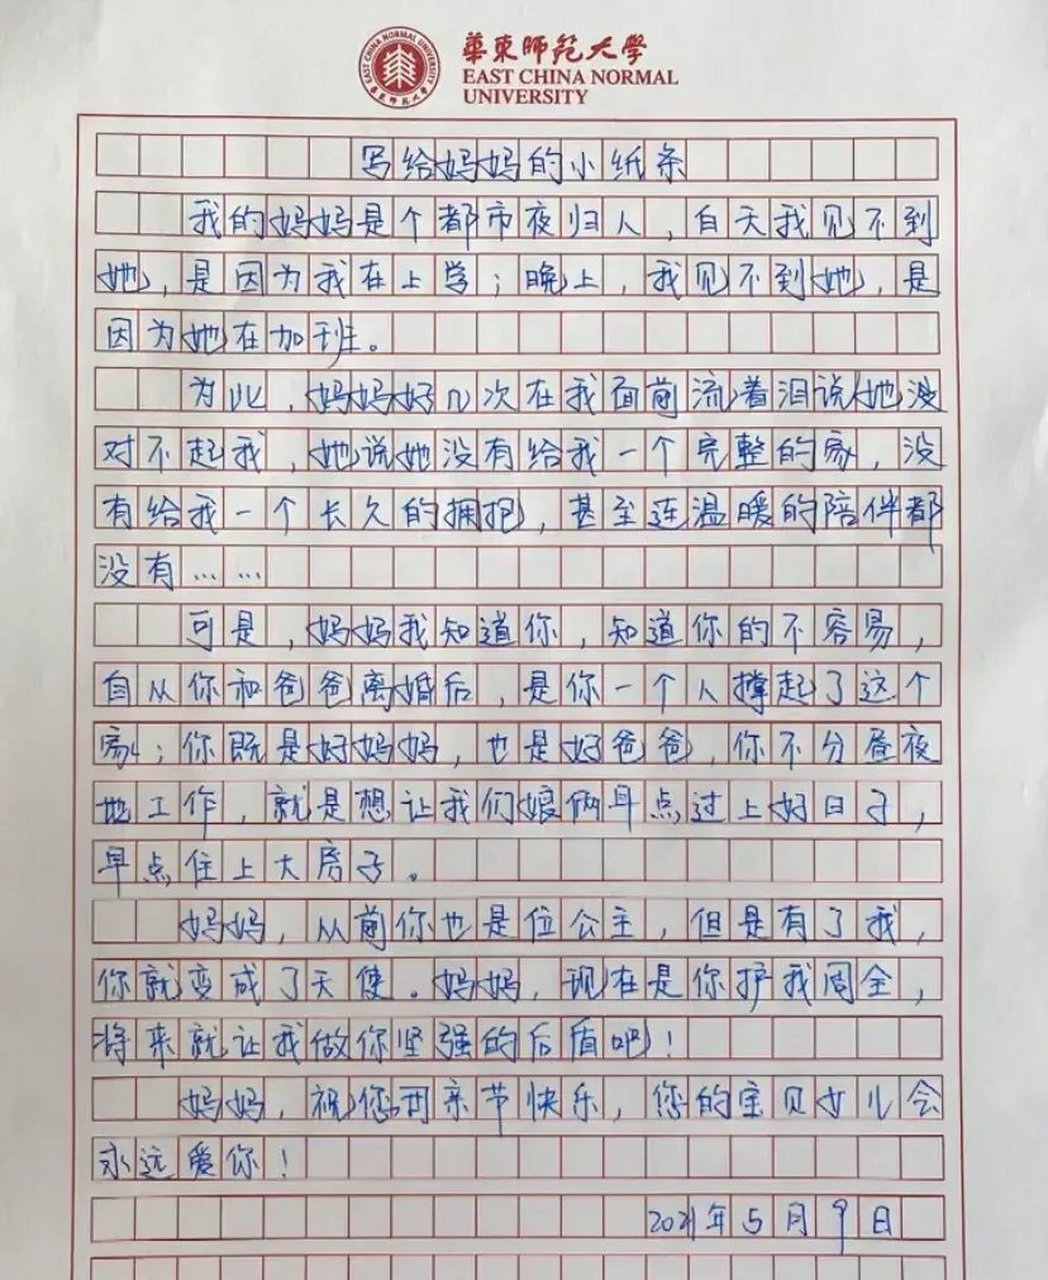 華東師範大學
EAST CHINA NORMAL
UNIVERSITY
EAST CHINA NORMAL UNIVERSITY
華東師範大學
写给妈妈的小纸条
我的妈妈是个都市夜归人，白天我见不到
她，是因为我在上学；晚上，我见不到她，是
因为她在加班。
为此，妈妈好几次在我面前流着泪说她没
对不起我，她说她没有给我一个完整的家，没
有给我一个长久的拥抱，甚至连温暖的陪伴都
没有……
可是，妈妈我知道你，知道你的不容易，
自从你和爸爸离婚后，是你一个人撑起了这个
家；你既是好妈妈，也是好爸爸，你不分昼夜
地工作，就是想让我们娘俩早点过上好日子，
早点住上大房子。
妈妈，从前你也是位公主，但是有了我，
你就变成了天使。妈妈，现在是你护我周全，
将来就让我做你坚强的后盾吧！
妈妈，祝您母亲节快乐，您的宝贝女儿会
永远爱你！
2021年5月9日